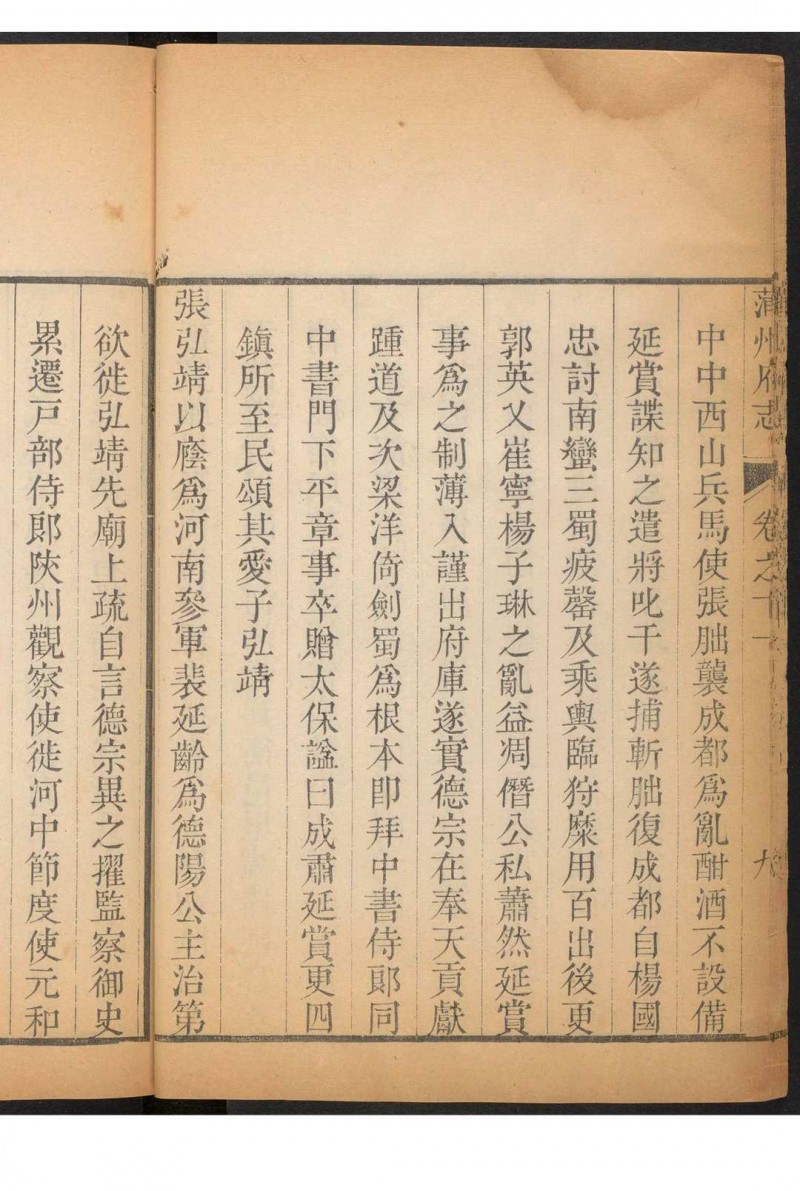 蒲州府志 卷之十一 九
中中西山兵馬使張朏襲成都爲亂酣酒不設備
延賞諜知之遣將叱干遂捕斬朏復成都自楊國
忠討南蠻三蜀疲罄及乘輿臨狩糜用百出後更
郭英乂崔寧楊子琳之亂益凋僭公私蕭然延賞
事爲之制薄入謹出府庫遂實德宗在奉天貢獻
踵道及次梁洋倚劍蜀爲根本卽拜中書侍郞同
中書門下平章事卒贈太保諡曰成肅延賞更四
鎭所至民頌其愛子弘靖
張弘靖以廕爲河南參軍裴延齡爲德陽公主治第
欲徙弘靖先廟上疏自言德宗異之擢監察御史
累遷戸部侍郞陝州觀察使徙河中節度使元和